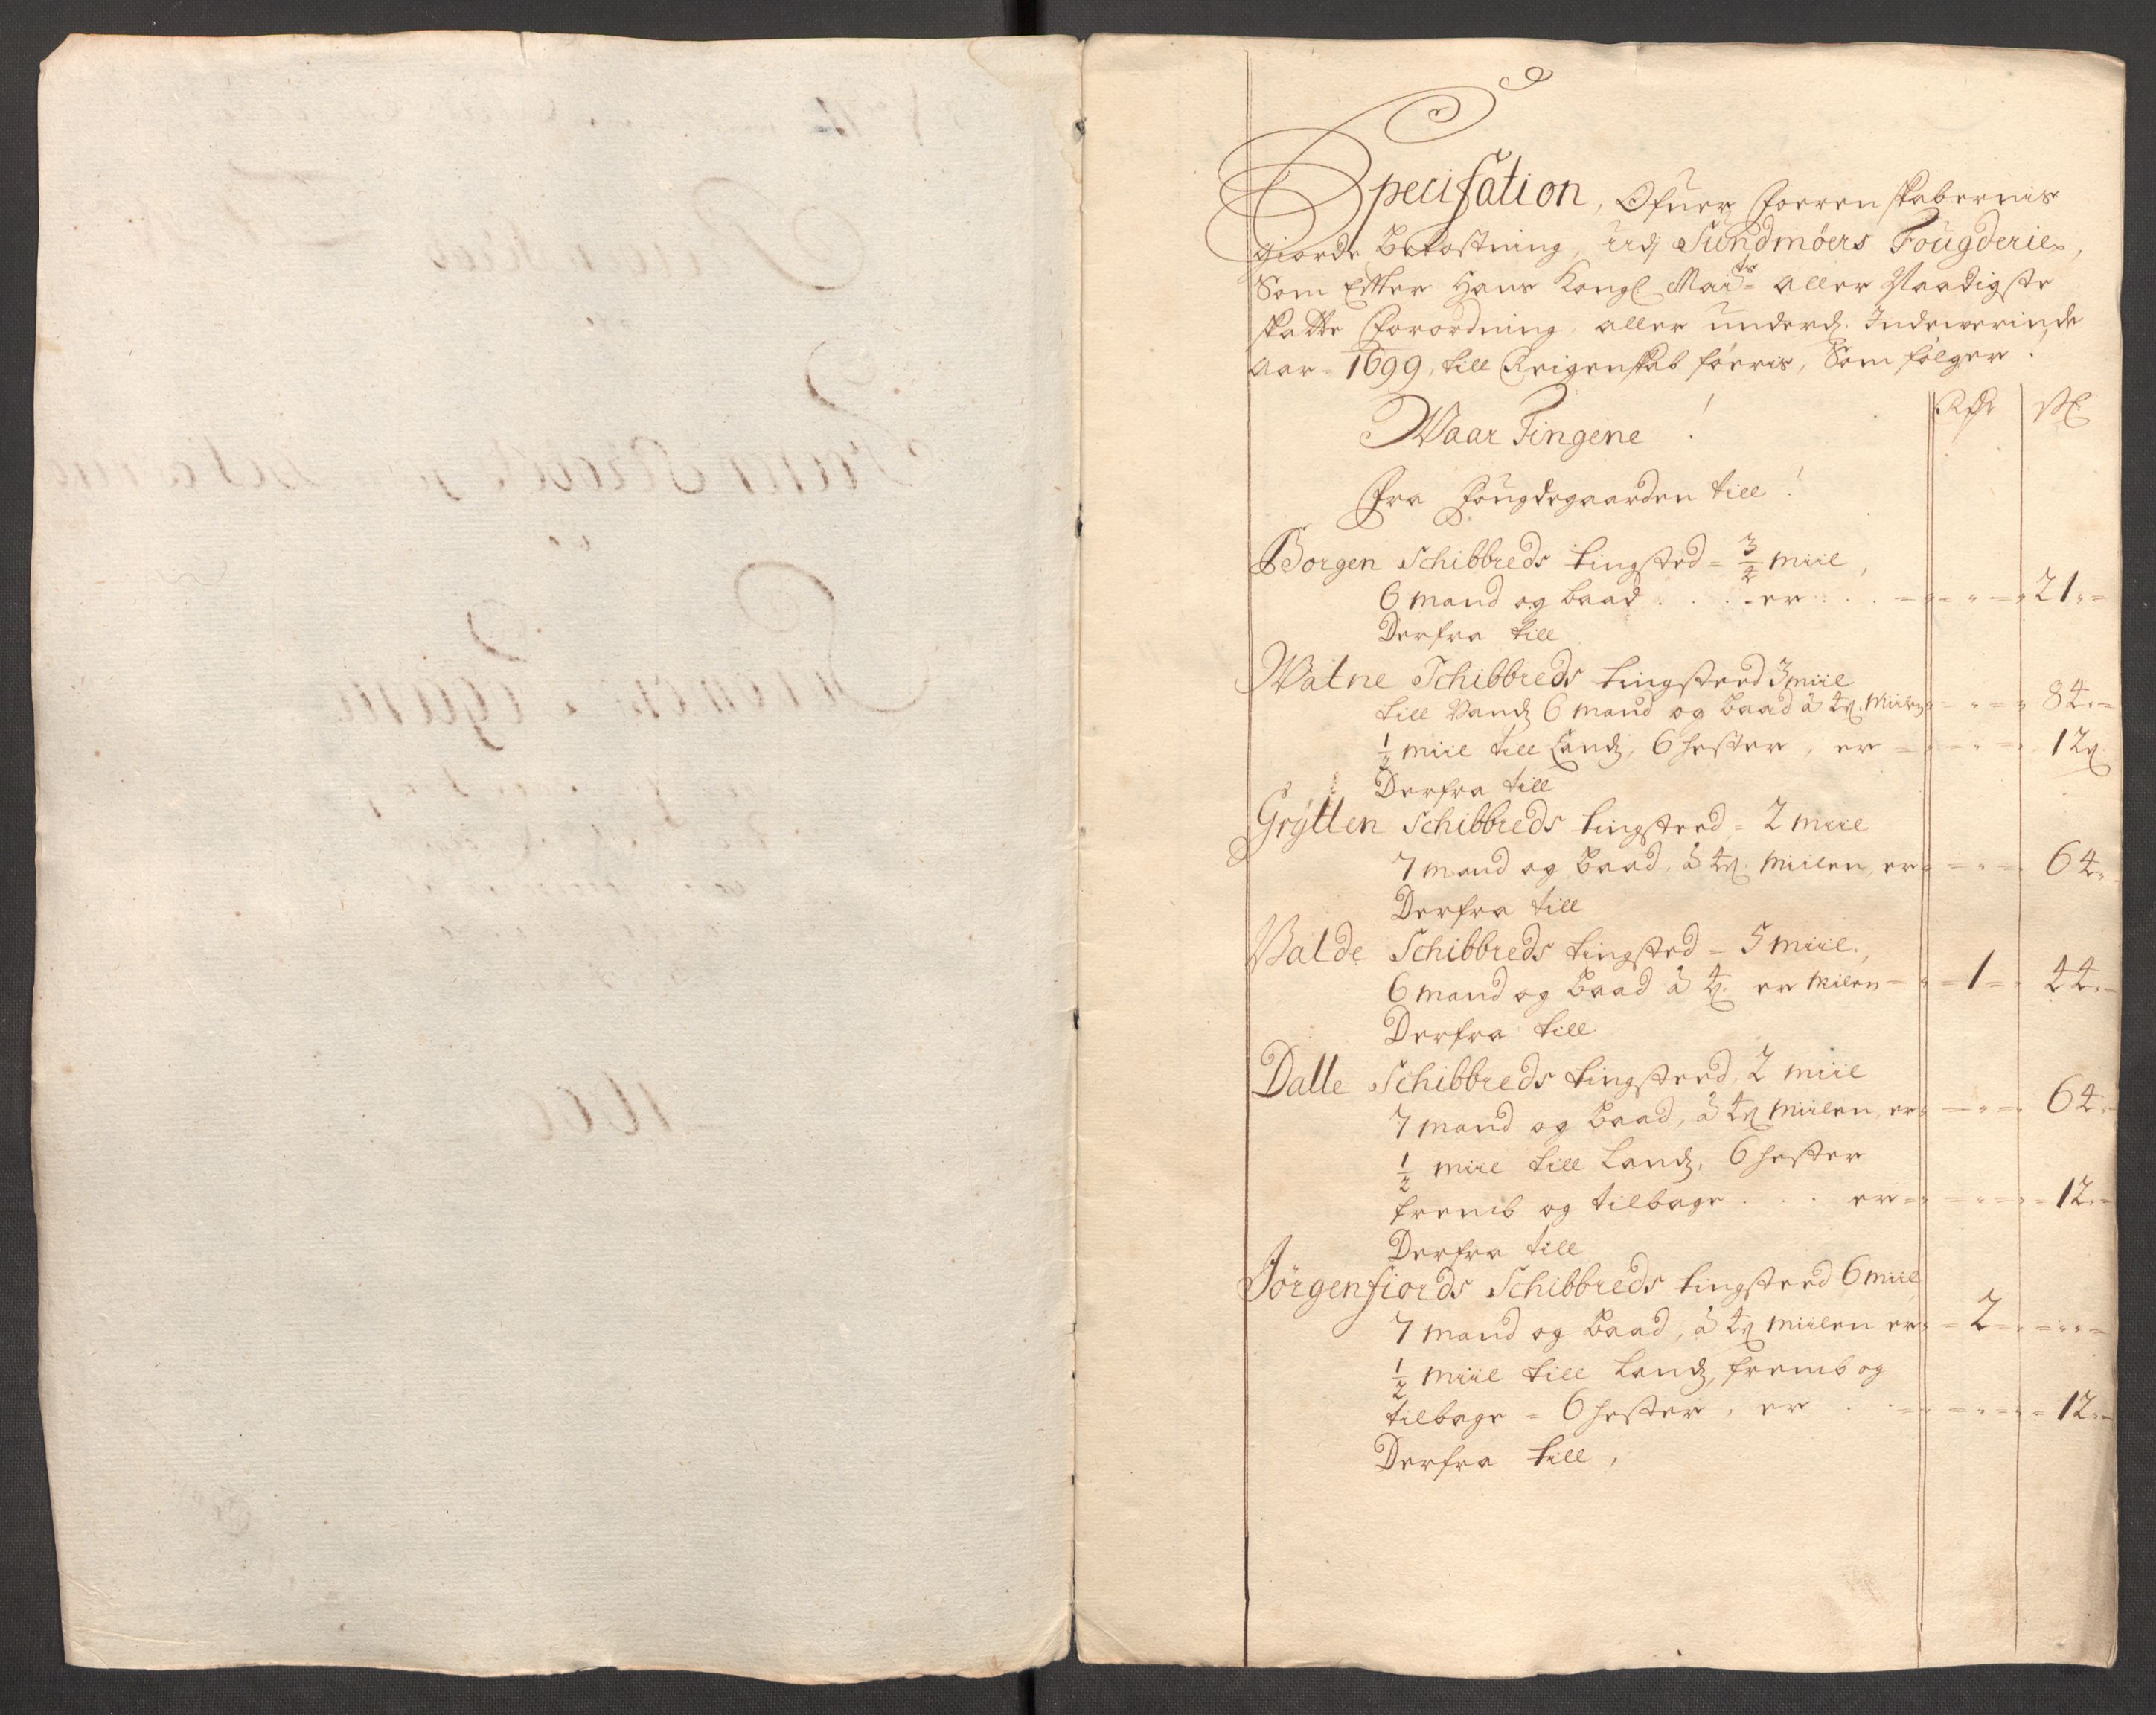 Specifation, Ofuer Foerenskabernis
giorde Bekostning, udj Sundmöers Fougderie,
Som Efter Hans Kongl Maits aller Naadigste
skatte Forordning, aller underd. Indeverinde
Aar = 1699, till Reigenskab föeris, Som fölger!
Rdr ß
Waar Tingene!
Fra Fougdegaarden till!
Borgen Schibbreds tingsted = 3/4 miil,
6 mand og baad . . . er . . 21
Derfra till
Watne Schibbreds tingsteed 3 miil
till Vandz 6 mand og baad á 4ß. miilen 84
1/2 miil till Landz, 6 hester, er 12ß.
Derfra till
Grytten Schibbreds tingsteed = 2 miil
7 mand og Baad, á 4ß. miilen, er 64
Derfra till
Valde Schibbreds tingsted = 5 miil.
6 mand og Baad á 4ß. er milen 1 44
Derfra till
Dalle Schibbreds tingsteed, 2 miil
7 mand og Baad, á 4ß miilen, er 64
1/2 miil till Landz, 6 hester
fremb og tilbage . . . er 12
Derfra till
Jörgenfiords Schibbreds tingsteed 6 miil
7 mand og Baad, á 4ß miilen er 2
1/2 miil till Landz, fremb og
tilbage = 6 hester, er . . 12
Derfra till,